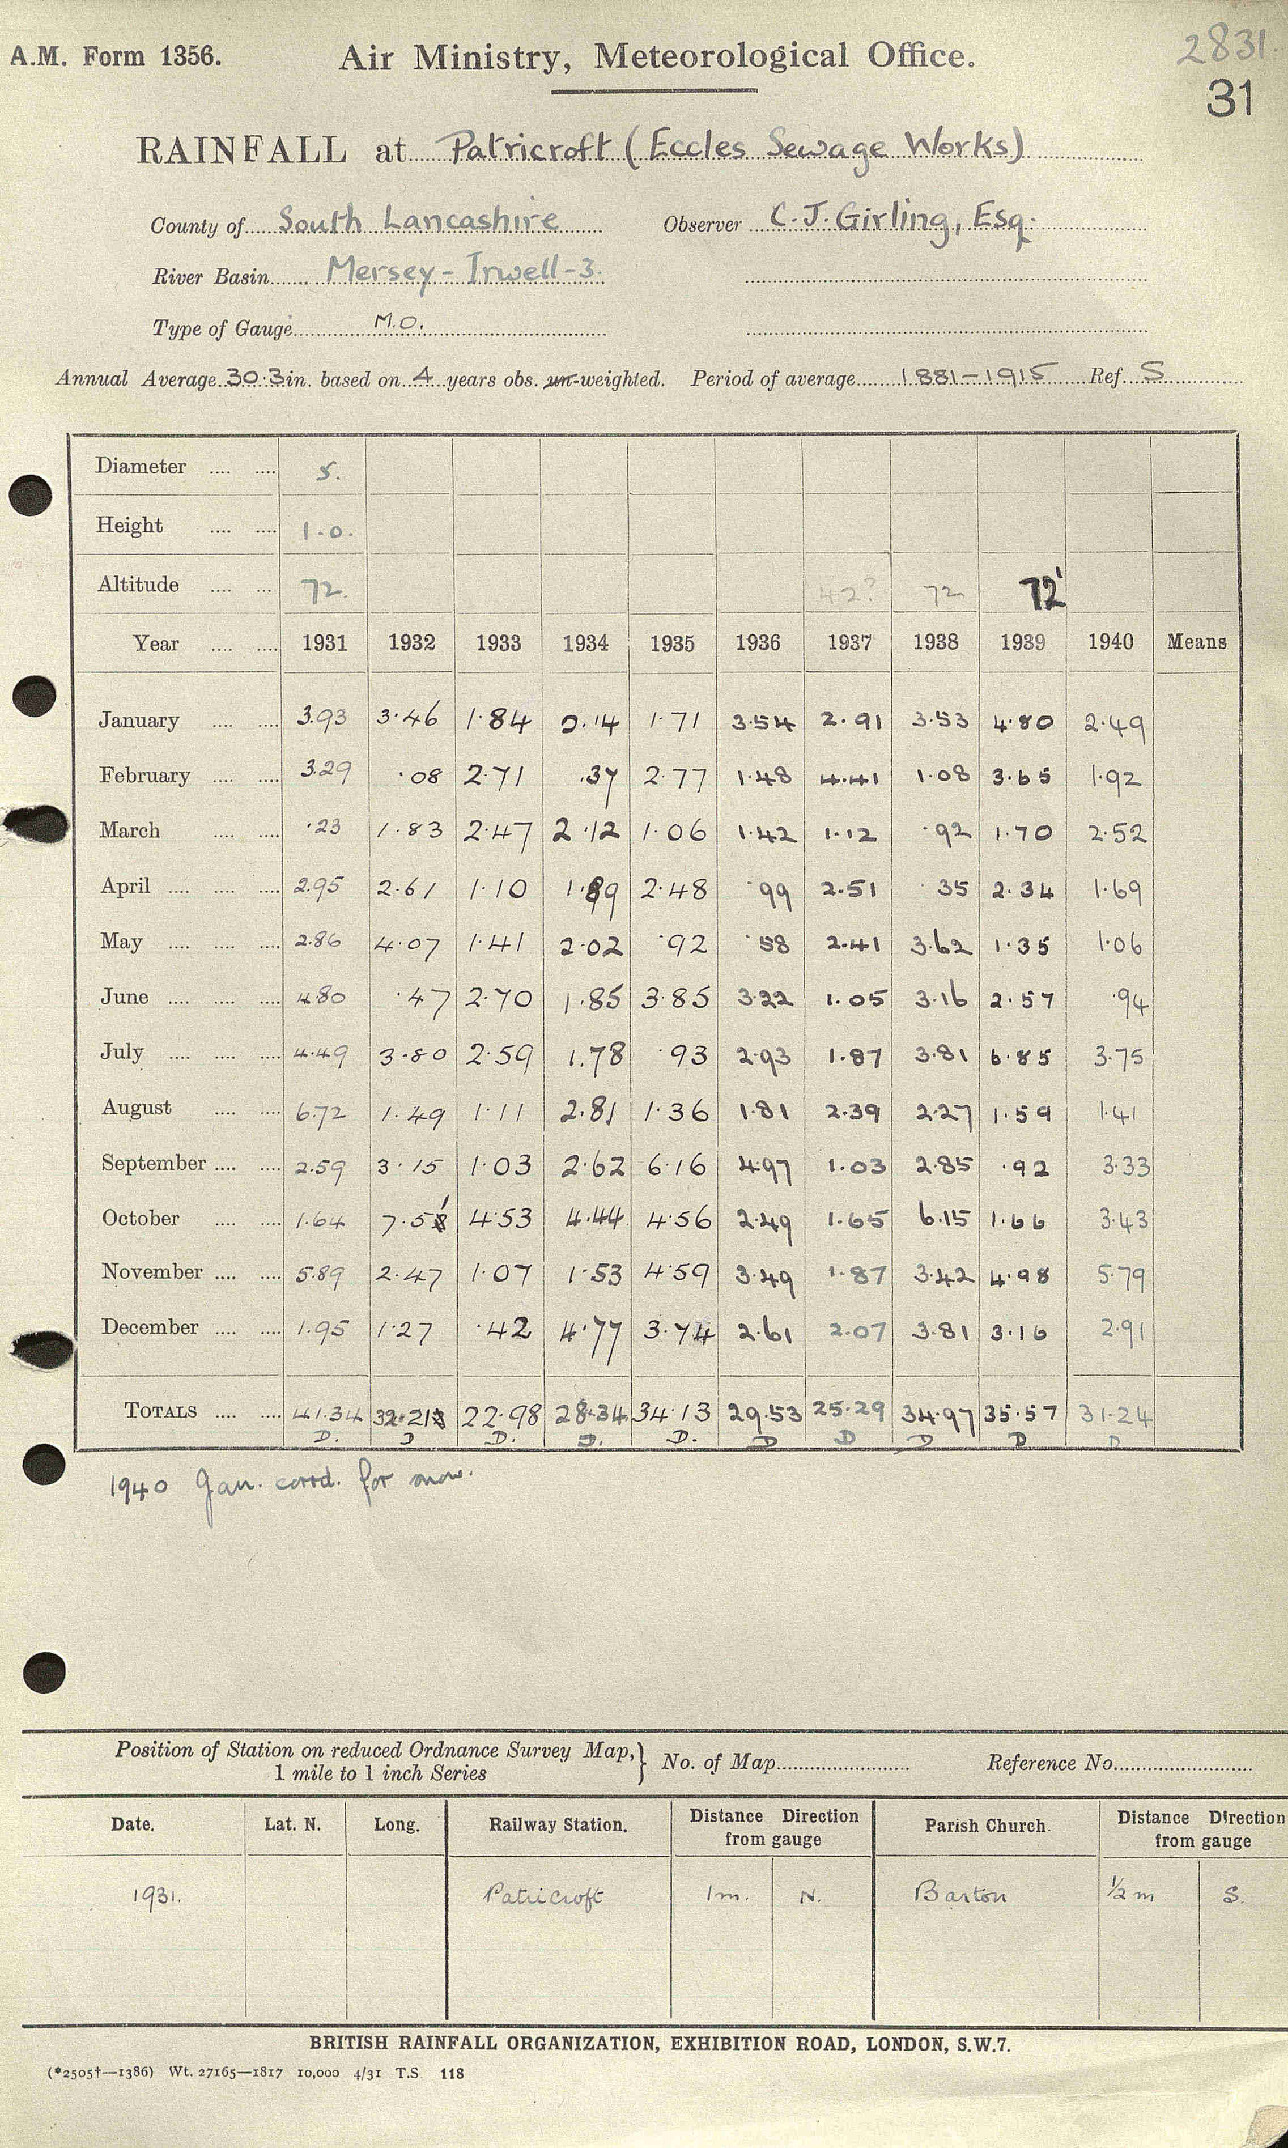 A.M. Form 1356.
Air Ministry, Meteorological Office.
2831
31
RAINFALL at Patricroft (Eccles Sewage Works)
County of South Lancashire Observer C. J. Girling, Esq.
River Basin Mersey - Irwell - 3.
Type of Gauge M.O.
Annual Average 30.3 in. based on 4 years obs. un-weighted. Period of average 1881-1915 Ref. S
Diameter 5.
Height 1.0.
Altitude 72. 42? 72 72'
Year 1931 1932 1933 1934 1935 1936 1937 1938 1939 1940 Means
January 3.93 3.46 1.84 2.14 1.71 3.54 2.91 3.53 4.80 2.49
February 3.29 .08 2.71 .37 2.77 1.48 4.41 1.08 3.65 1.92
March .23 1.83 2.47 2.12 1.06 1.42 1.12 .92 1.70 2.52
April 2.95 2.61 1.10 1.89 2.48 .99 2.51 .35 2.34 1.69
May 2.86 4.07 1.41 2.02 .92 .58 2.41 3.62 1.35 1.06
June 4.80 .47 2.70 1.85 3.85 3.22 1.05 3.16 2.57 .94
July 4.49 3.80 2.59 1.78 .93 2.93 1.87 3.81 6.85 3.75
August 6.72 1.49 1.11 2.81 1.36 1.81 2.39 2.27 1.59 1.41
September 2.59 3.15 1.03 2.62 6.16 4.97 1.03 2.85 .92 3.33
October 1.64 7.51 4.53 4.44 4.56 2.49 1.65 6.15 1.66 3.43
November 5.89 2.47 1.07 1.53 4.59 3.49 1.87 3.42 4.98 5.79
December 1.95 1.27 .42 4.77 3.74 2.61 2.07 3.81 3.16 2.91
TOTALS 41.34 32.21 22.98 28.34 34.13 29.53 25.29 34.97 35.57 31.24
D. D D. D. D. D D D D D
1940 Jan. corrd. for snow.
Position of Station on reduced Ordnance Survey Map, 1 mile to 1 inch Series } No. of Map Reference No.
Date. Lat. N. Long. Railway Station. Distance Direction from gauge Parish Church. Distance Direction from gauge
1931. Patricroft 1m. N. Barton ½ m S.
BRITISH RAINFALL ORGANIZATION, EXHIBITION ROAD, LONDON, S.W.7.
(*2505†—1386) Wt. 27165—1817 10,000 4/31 T.S. 118